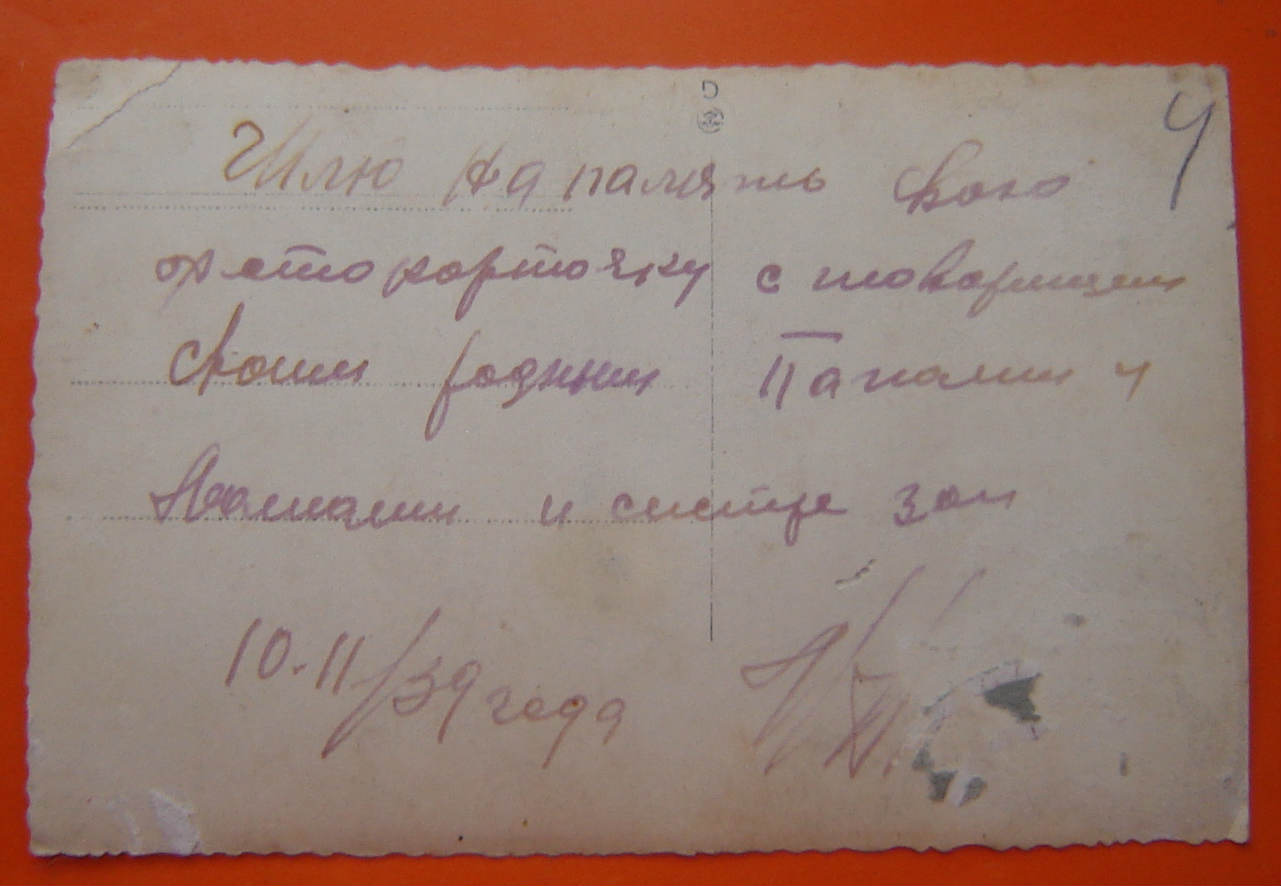 Шлю на память свою
фотокорточку с товарищем
своим родным Папаши и
Мамаши и систре Зои
10-11/39 года